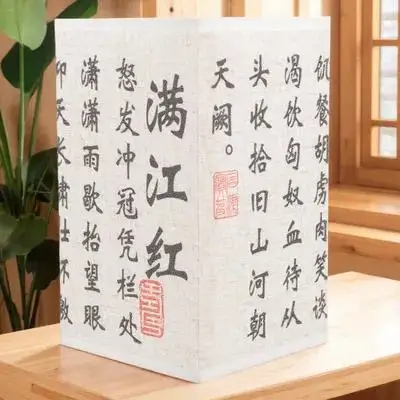 满江红
怒发冲冠凭栏处
潇潇雨歇抬望眼
仰天长啸壮不激
饥餐胡虏肉笑谈
渴饮匈奴血待从
头收拾旧山河朝
天阙。